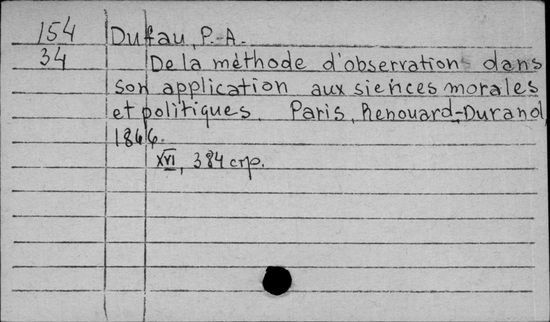 154 Dufau, P.-A.
34 De la méthode d'observation dans
son application aux siences morales
et politiques. Paris, Renouard-Durand,
1866.
XVI, 384 стр.